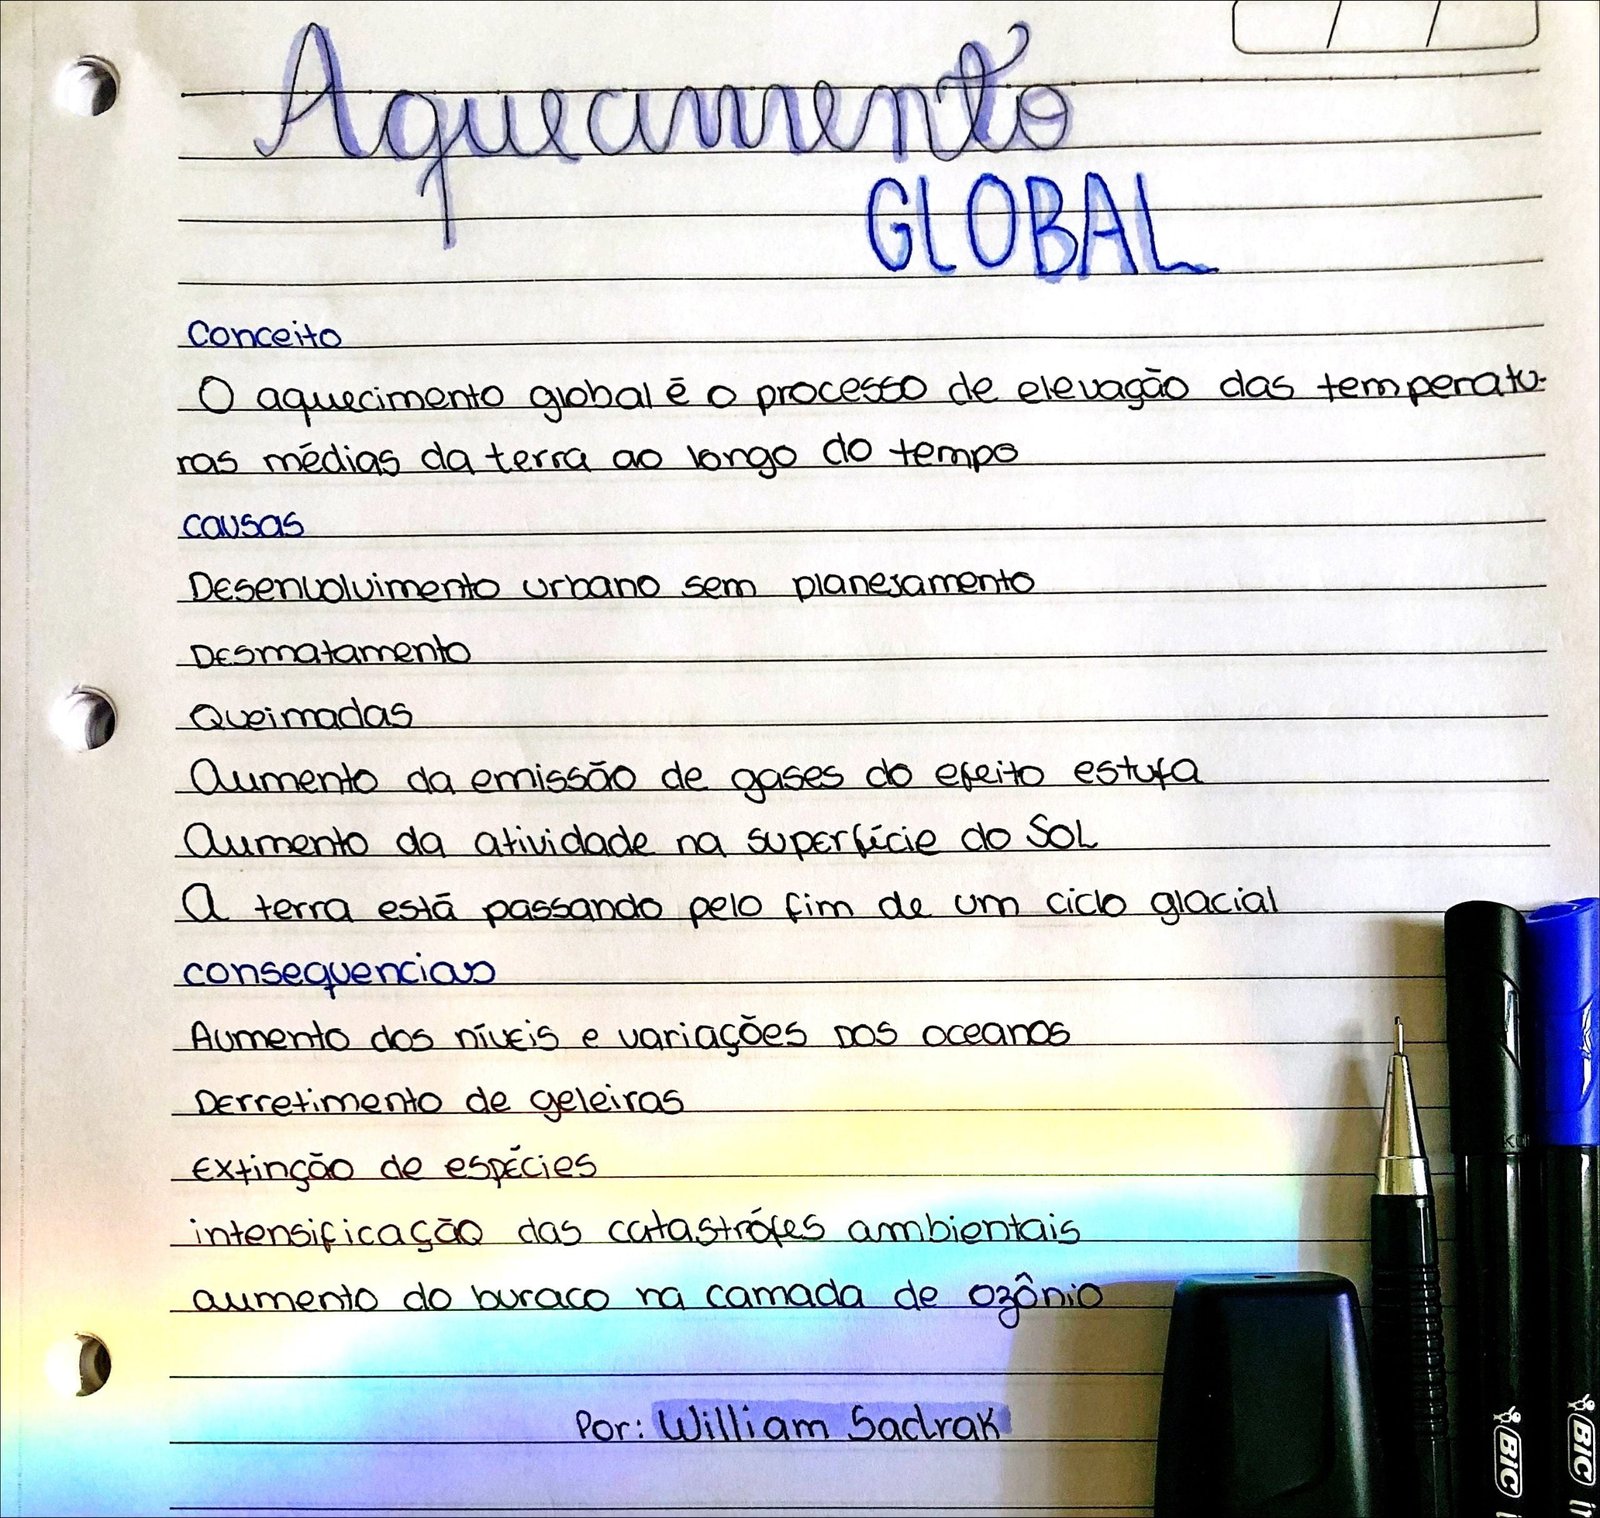 Aqueamento
GLOBAL
Conceito
O aquecimento global é o processo de elevação das temperatu-
ras médias da terra ao longo do tempo
causas
Desenvolvimento urbano sem planejamento
Desmatamento
Queimadas
Aumento da emissão de gases do efeito estufa
Aumento da atividade na superfície do SOL
A terra está passando pelo fim de um ciclo glacial
consequencias
Aumento dos níveis e variações nos oceanos
Derretimento de geleiras
Extinção de espécies
intensificação das catastrófes ambientais
aumento do buraco na camada de ozônio
Por: William Sadrak
BIC
BIC